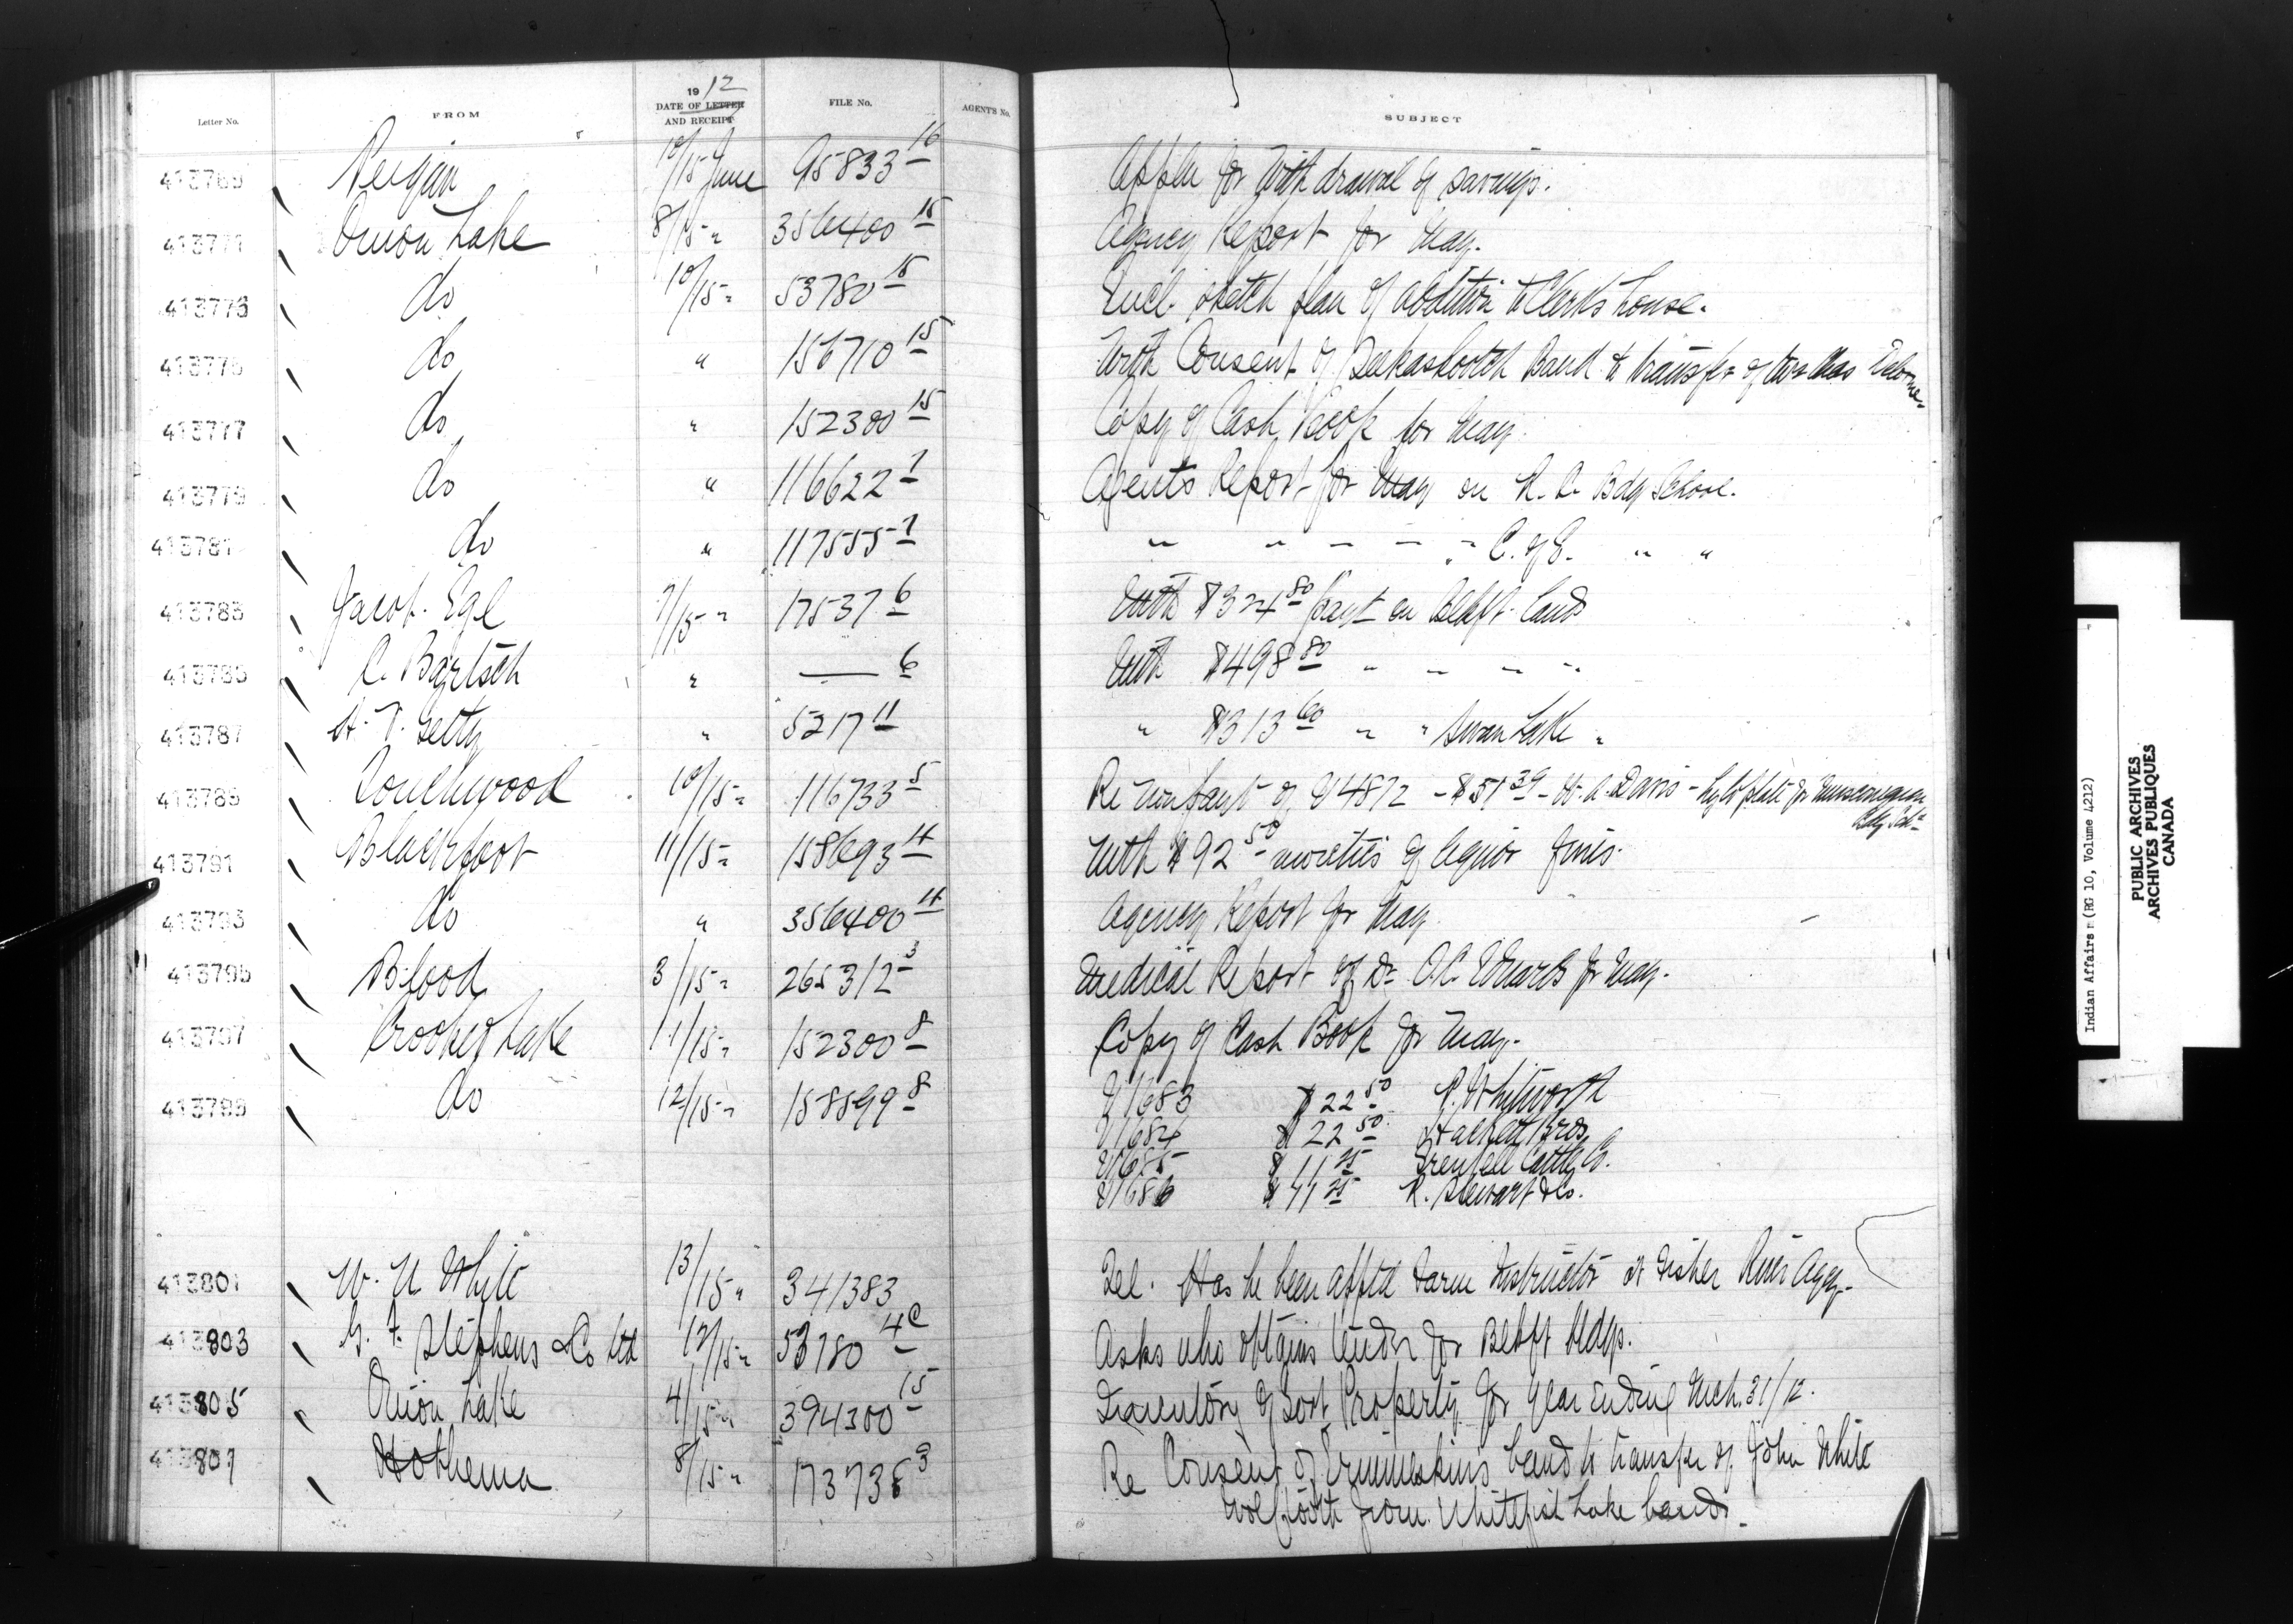 Letter No. FROM 1912 DATE OF LETTER AND RECEIPT FILE No. AGENT'S No. SUBJECT
413769 Peigan 10/15 June 95833 16 Applu for Withdrawal of savings.
413771 Onion Lake 8/15 " 356400 15 Agency Report for May.
413773 do 10/15 " 53780 15 Encl. sketch plan of addition to Clerks house.
413775 do " 156710 15 With Consent of Band to transfer of
413777 do " 152300 15 Copy of Cash Book for May.
413779 do " 116622 1 Agents Report for May on R. C. Bdg School.
413781 do " 117555 1 " " " " " C. of E. " "
413783 Jacob Egl 7/15 " 17537 6 With $324 80 payt on Blkft lands
413785 C. Bartsch " — 6 With $498 80 " " " "
413787 Getty " 5217 11 " $313 60 " " Swan Lake "
413789 Touchwood 10/15 " 116733 5 Re non payt of 4872 - $51 39 - Davis - for Muscowequan Bdg Schl
413791 Blackfoot 11/15 " 158693 4 With $92 50 moieties of liquor fines.
413793 do " 356400 4 Agency Report for May
413795 Blood 3/15 " 265312 3 Medical Report of Dr. O.C. Edwards for May.
413797 Crooked Lake 11/15 " 152300 8 Copy of Cash Book for May.
413799 do 12/15 " 158599 8 1683 $22 50 R. Whitworth
1684 $22 50 Bros
1685 $11 25 Grenfell Cattle Co.
1686 $41 25 R. Stewart & Co.
413801 W. White 13/15 " 341383 Tel. Has he been apptd Farm Instructor at Fisher River Agcy.
413803 G. F. Stephens & Co Ltd 12/15 " 53780 4c Asks who obtains tender for Blkft bldgs.
413805 Onion Lake 4/15 " 394300 15 Inventory of Govt Property for year ending Mch. 31/12.
413807 Hobbema 8/15 " 173738 3 Re Consent of Ermineskins band to transfer of John White
Wolftooth from Whitefish Lake band.
Indian Affairs (RG 10, Volume 4212)
PUBLIC ARCHIVES
ARCHIVES PUBLIQUES
CANADA